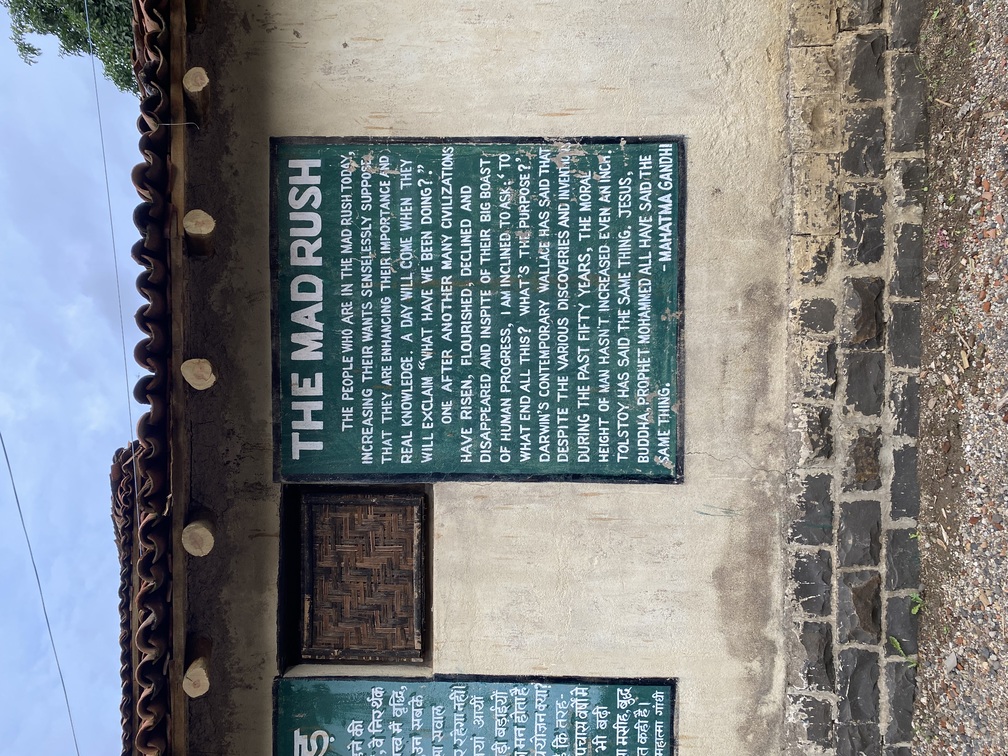 ड़
ड़ने की
, वे निरर्थक
त्त्व में वृद्धि,
उन सबके
सा सवाल
र रहेगा नहीं।
यतां आयीं
ड़ी बड़ाईयों
मन होता है
प्रयोजन क्या?
है कि तरह-
पचास वर्षों मे
भी बढ़ी
मसीह, बुद्ध
त कही है।
महात्मा गांधी
THE MAD RUSH
THE PEOPLE WHO ARE IN THE MAD RUSH TODAY,
INCREASING THEIR WANTS SENSELESSLY SUPPOSE
THAT THEY ARE ENHANCING THEIR IMPORTANCE AND
REAL KNOWLEDGE. A DAY WILL COME WHEN THEY
WILL EXCLAIM "WHAT HAVE WE BEEN DOING?."
ONE AFTER ANOTHER MANY CIVILIZATIONS
HAVE RISEN, FLOURISHED, DECLINED AND
DISAPPEARED AND INSPITE OF THEIR BIG BOAST
OF HUMAN PROGRESS, I AM INCLINED TO ASK, 'TO
WHAT END ALL THIS? WHAT'S THE PURPOSE?'
DARWIN'S CONTEMPORARY WALLACE HAS SAID THAT
DESPITE THE VARIOUS DISCOVERIES AND INVENTIONS
DURING THE PAST FIFTY YEARS, THE MORAL
HEIGHT OF MAN HASN'T INCREASED EVEN AN INCH.
TOLSTOY HAS SAID THE SAME THING. JESUS,
BUDDHA, PROPHET MOHAMMED ALL HAVE SAID THE
SAME THING. - MAHATMA GANDHI